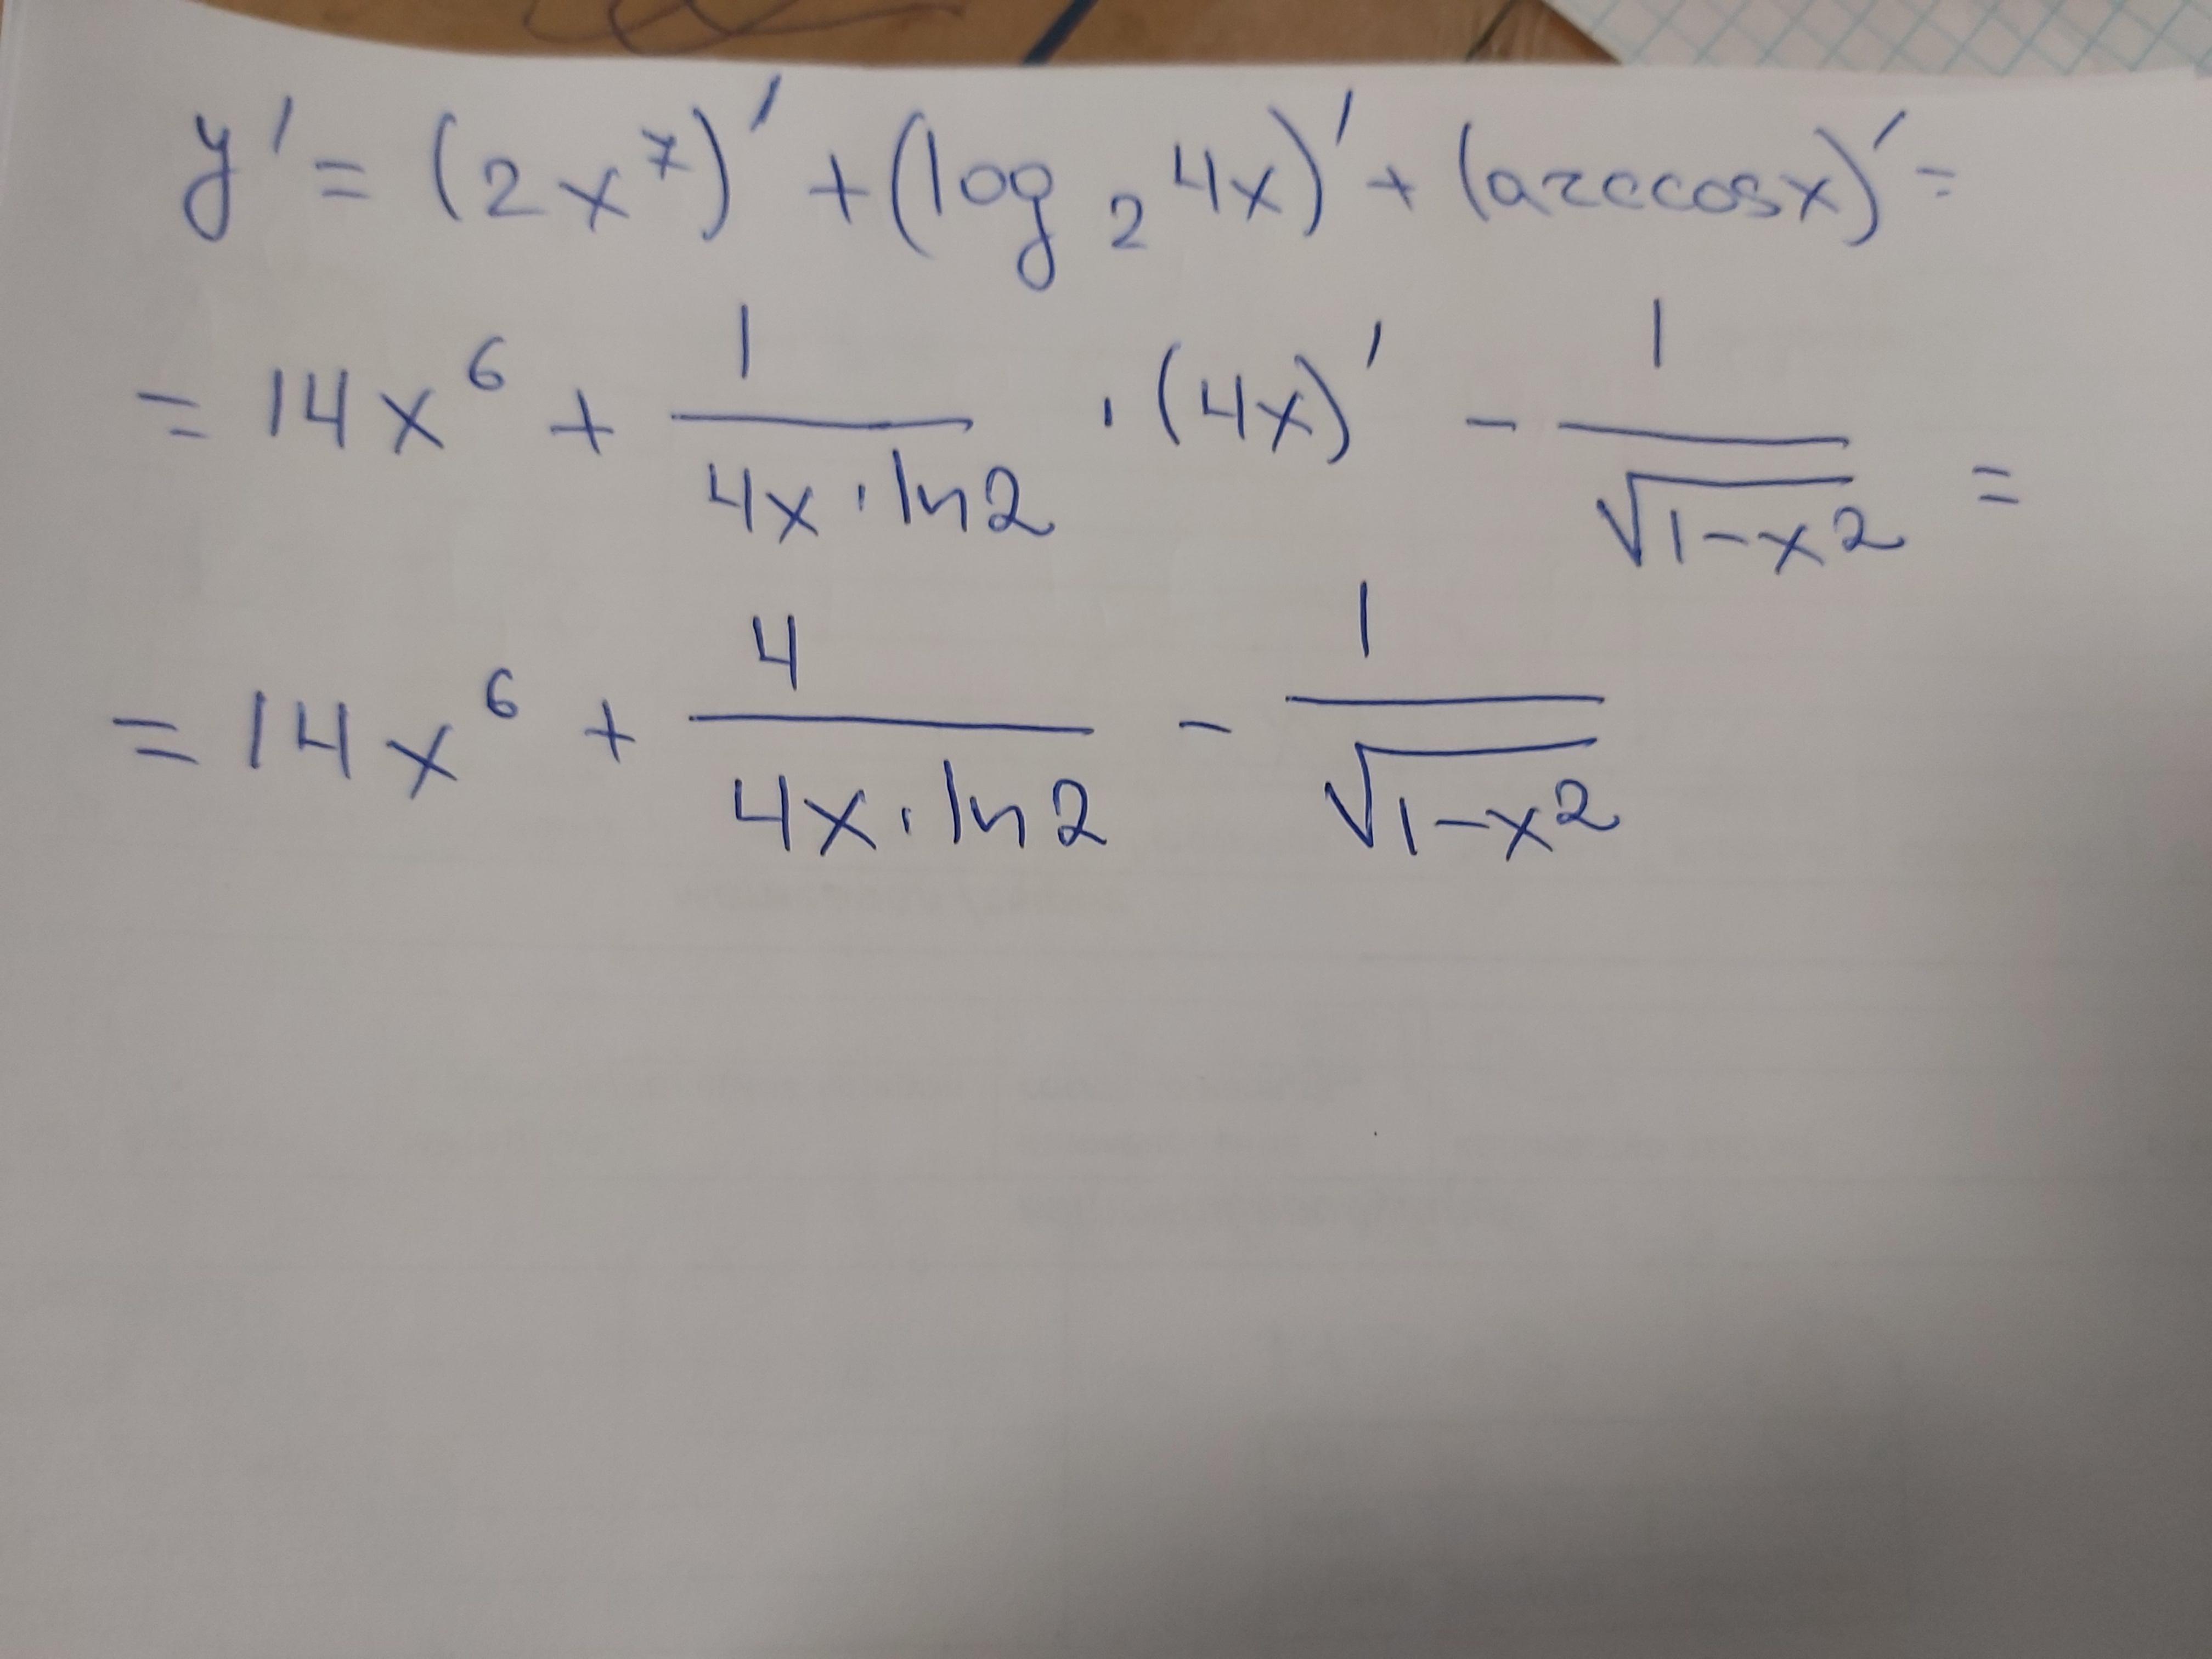 y' = (2x⁷)' + (log₂ 4x)' + (arccos x)' =
= 14x⁶ + 1/(4x · ln2) · (4x)' - 1/√(1-x²) =
= 14x⁶ + 4/(4x · ln2) - 1/√(1-x²)